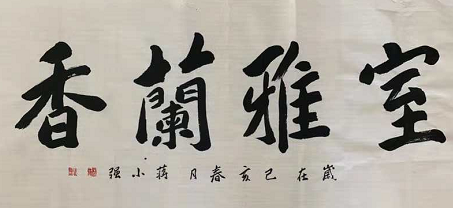 室雅蘭香
歲在己亥春月蒋小强